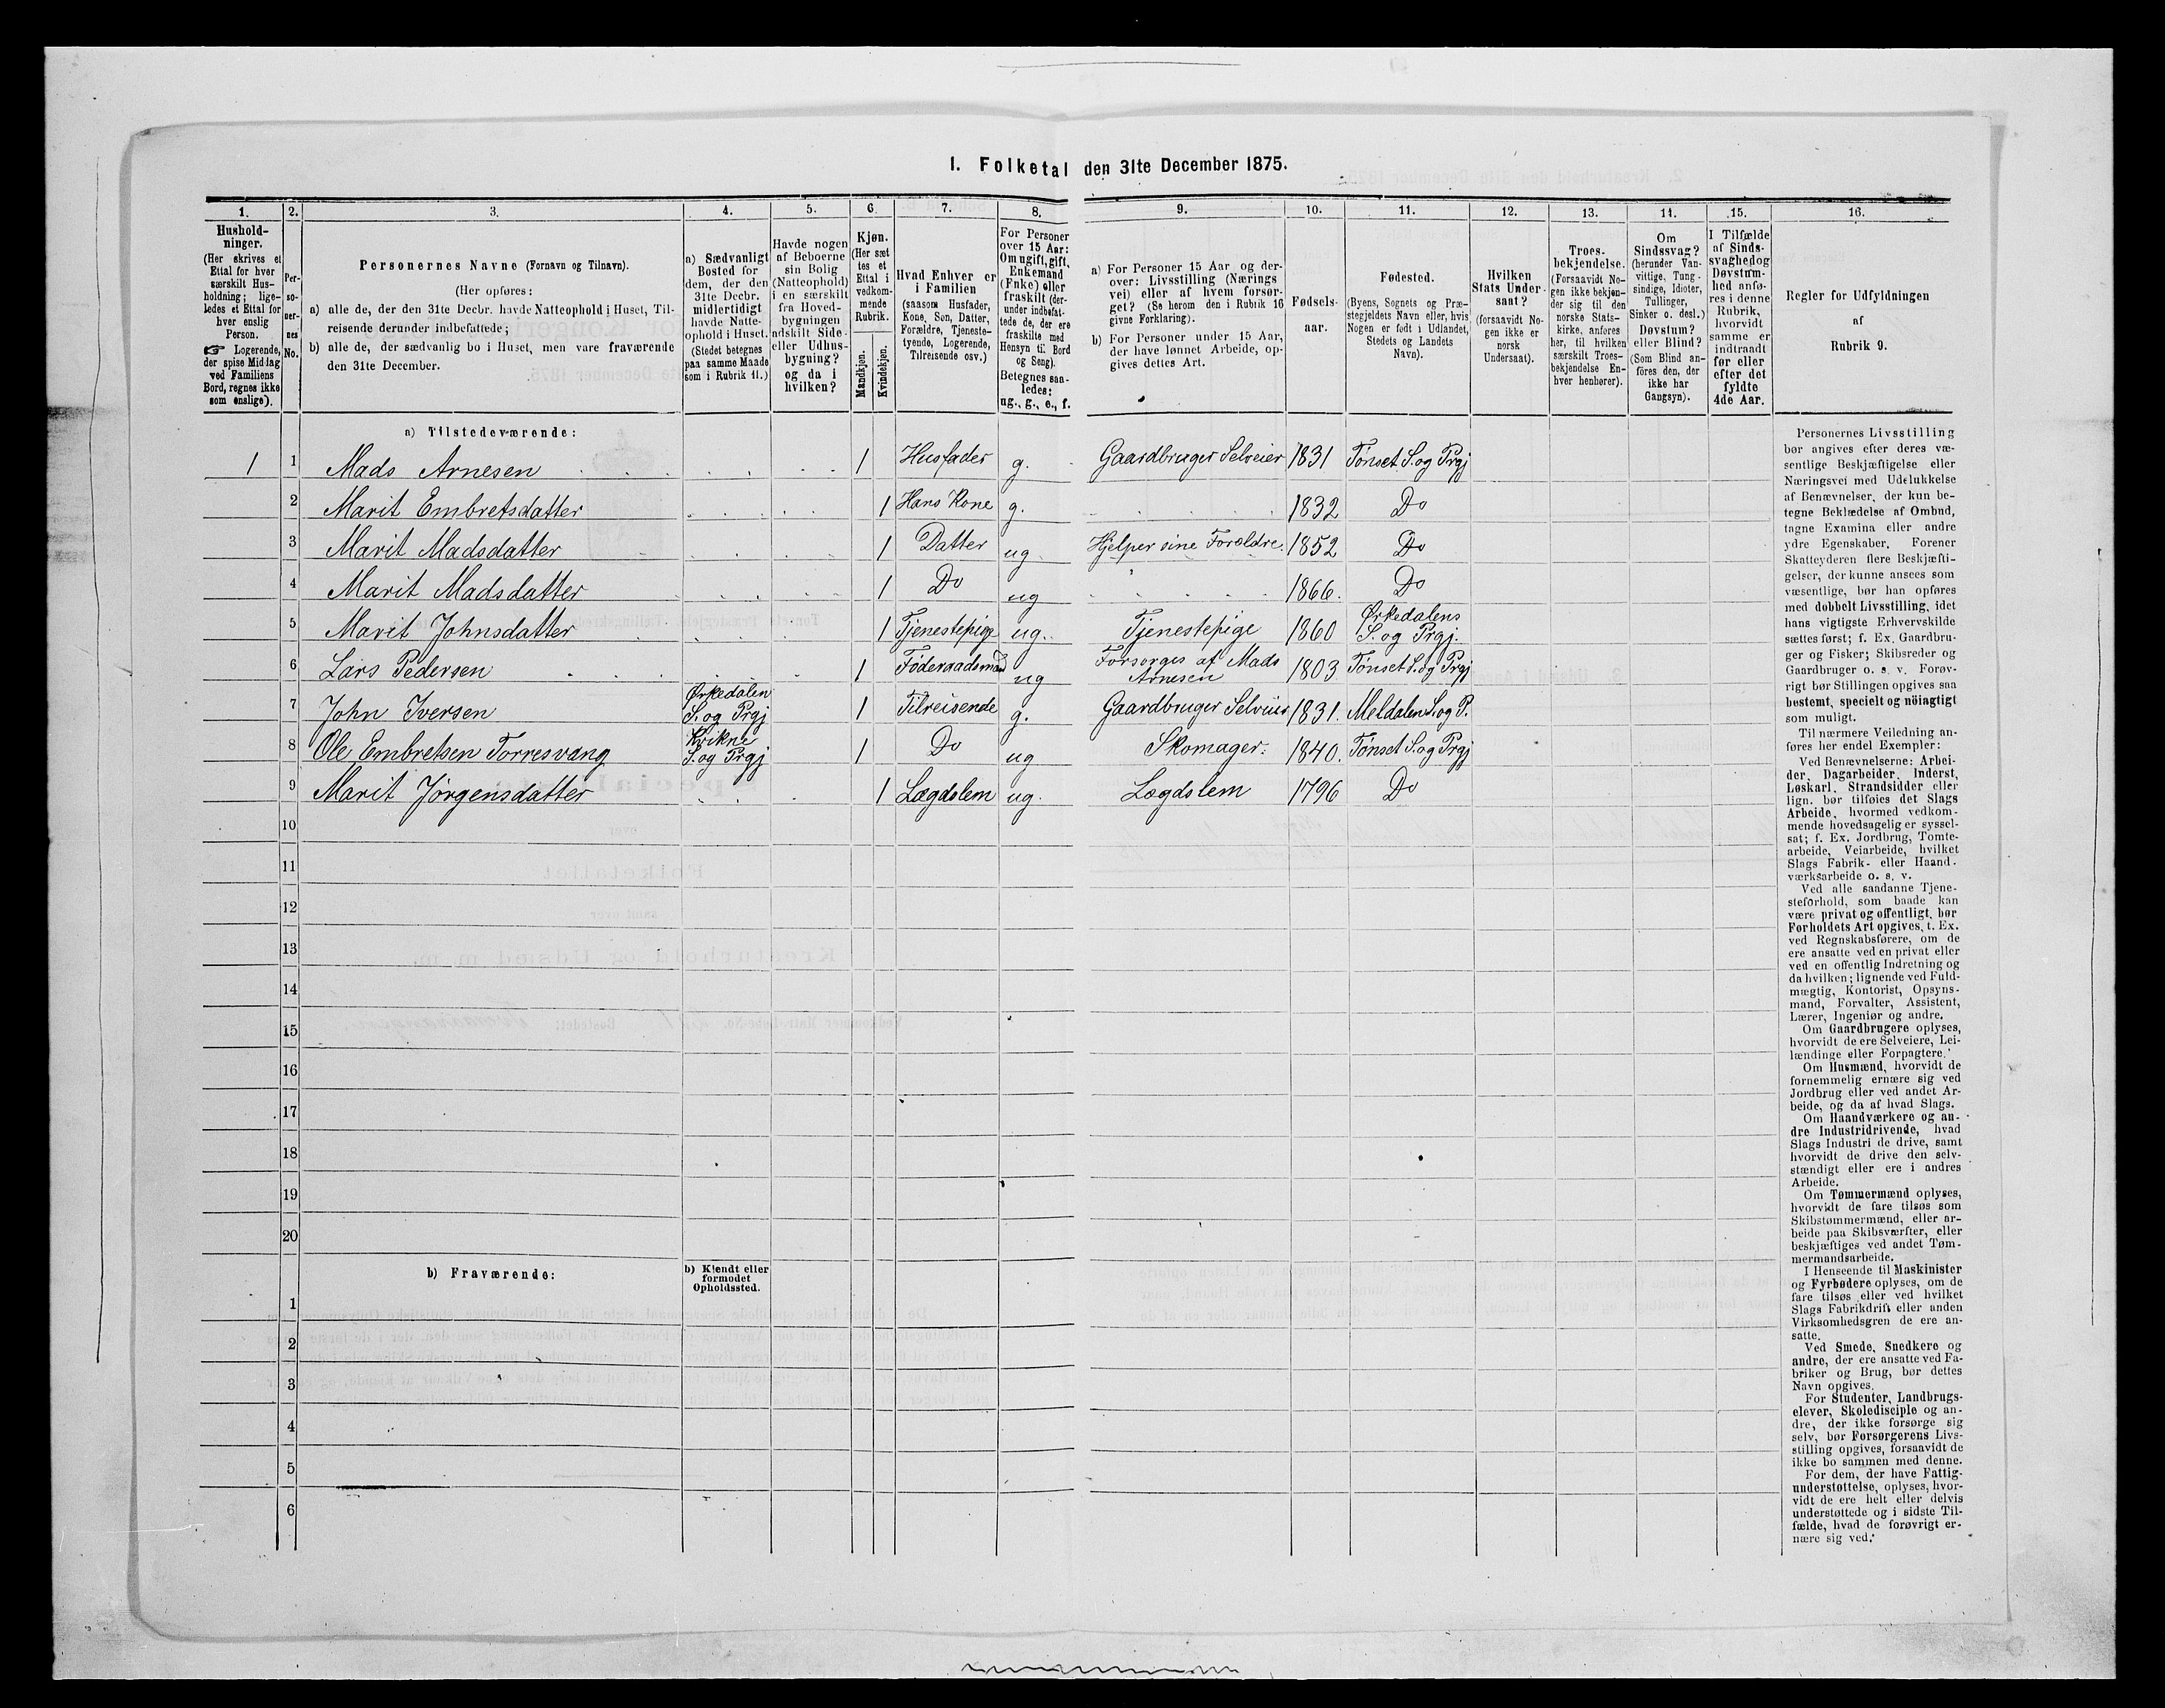 1. Folketal den 31te December 1875.
1. 2. 3. 4. 5. 6. 7. 8. 9. 10. 11. 12. 13. 14. 15. 16.
Hushold-
ninger.
(Her skrives et
Ettal for hver
særskilt Hus-
holdning; lige-
ledes et Ettal for
hver enslig
Person.
☞ Logerende,
der spise Middag
ved Familiens
Bord, regnes ikke
som enslige).
Per-
so-
ner-
nes
No.
Personernes Navne (Fornavn og Tilnavn).
(Her opføres:
a) alle de, der den 31te Decbr. havde Natteophold i Huset, Til-
reisende derunder indbefattede;
b) alle de, der sædvanlig bo i Huset, men vare fraværende
den 31te December.
a) Sædvanligt
Bosted for
dem, der den
31te Decbr.
midlertidigt
havde Natte-
ophold i Huset.
(Stedet betegnes
paa samme Maade
som i Rubrik 11.)
Havde nogen
af Beboerne
sin Bolig
(Natteophold)
i en særskilt
fra Hoved-
bygningen
adskilt Side-
eller Udhus-
bygning?
og da i
hvilken?
Kjøn.
(Her sæt
tes et
Ettal i
vedkom-
mende
Rubrik.
Mandkjøn.
Kvindekjøn.
Hvad Enhver er
i Familien
(saasom Husfader,
Kone, Søn, Datter,
Forældre, Tjeneste-
tyende, Logerende,
Tilreisende osv.)
For Personer
over 15 Aar:
Om ugift, gift,
Enkemand
(Enke) eller
fraskilt (der-
under indbefat-
tede de, der ere
fraskilte med
Hensyn til Bord
og Seng).
Betegnes saa-
ledes:
ug., g., e., f.
a) For Personer 15 Aar og der-
over: Livsstilling (Nærings
vei) eller af hvem forsør-
get? (Se herom den i Rubrik 16
givne Forklaring).
b) For Personer under 15 Aar,
der have lønnet Arbeide, op-
gives dettes Art.
Fødsels-
aar.
Fødested.
(Byens, Sognets og Præ-
stegjeldets Navn eller, hvis
Nogen er født i Udlandet,
Stedets og Landets
Navn).
Hvilken
Stats Under-
saat?
(forsaavidt No-
gen ikke er
norsk
Undersaat).
Troes-
bekjendelse.
(Forsaavidt No-
gen ikke bekjen-
der sig til den
norske Stats-
kirke, anføres
her, til hvilken
særskilt Troes-
bekjendelse En-
hver henhører).
Om
Sindssvag?
(herunder Van-
vittige, Tung-
sindige, Idioter,
Tullinger,
Sinker o. desl.)
Døvstum?
eller Blind?
(Som Blind an-
føres den, der
ikke har
Gangsyn).
I Tilfælde
af Sinds-
svaghed og
Døvstum-
hed anfø-
res i denne
Rubrik,
hvorvidt
samme er
indtraadt
før eller
efter det
fyldte
4de Aar.
Regler for Udfyldningen
af
Rubrik 9.
a) Tilstedeværende:
1 1 Mads Arnesen 1 Husfader g. Gaardbruger Selveier 1831 Tønset S. og Prgj
2 Marit Embretsdatter 1 Hans Kone g. 1832 Do
3 Marit Madsdatter 1 Datter ug Hjelper sine Forældre. 1852 Do
4 Marit Madsdatter 1 Do ug 1866. Do
5 Marit Johnsdatter 1 Tjenestepige ug. Tjenestepige 1860 Ørkedalens
S. og Prgj.
6 Lars Pedersen 1 Føderaadsmand ug Forsorges af Mads
Arnesen 1803 Tønset S. og Prgj
7 John Iversen Ørkedalen
S. og Prgj 1 Tilreisende g. Gaardbruger Selveier 1831. Meldalen S. og P.
8 Ole Embretsen Torresvang Kvikne
S. og Prgj 1 Do ug Skomager. 1840. Tønset S. og Prgj
9 Marit Jørgensdatter 1 Lægdslem ug. Lægdslem 1796 Do
10
11
12
13
14
15
16
17
18
19
20
b) Fraværende:
b) Kjendt eller
formodet
Opholdssted.
1
2
3
4
5
6
Personernes Livsstilling
bør angives efter deres væ-
sentlige Beskjæftigelse eller
Næringsvei med Udelukkelse
af Benævnelser, der kun be-
tegne Beklædelse af Ombud,
tagne Examina eller andre
ydre Egenskaber. Forener
Skatteyderen flere Beskjæfti-
gelser, der kunne ansees som
væsentlige, bør han opføres
med dobbelt Livsstilling, idet
hans vigtigste Erhvervskilde
sættes først; f. Ex. Gaardbru-
ger og Fisker; Skibsreder og
Gaardbruger o. s. v. Forøv-
rigt bør Stillingen opgives saa
bestemt, specielt og nöiagtigt
som muligt.
Til nærmere Veiledning an-
føres her endel Exempler:
Ved Benævnelserne: Arbei-
der, Dagarbeider, Inderst,
Løskarl, Strandsidder eller
lign. bør tilføies det Slags
Arbeide, hvormed vedkom-
mende hovedsagelig er syssel-
sat; f. Ex. Jordbrug, Tomte-
arbeide, Veiarbeide, hvilket
Slags Fabrik- eller Haand-
værksarbeide o. s. v.
Ved alle saadanne Tjene-
steforhold, som baade kan
være privat og offentligt, bør
Forholdets Art opgives, t. Ex.
ved Regnskabsførere, om de
ere ansatte ved en privat eller
ved en offentlig Indretning og
da hvilken; lignende ved Fuld-
mægtig, Kontorist, Opsyns-
mand, Forvalter, Assistent,
Lærer, Ingeniør og andre.
Om Gaardbrugere oplyses,
hvorvidt de ere Selveiere, Lei-
lændinge eller Forpagtere.
Om Husmænd, hvorvidt de
fornemmelig ernære sig ved
Jordbrug eller ved andet Ar-
beide, og da af hvad Slags.
Om Haandværkere og an-
dre Industridrivende, hvad
Slags Industri de drive, samt
hvorvidt de drive den selv-
stændigt eller ere i andres
Arbeide.
Om Tømmermænd oplyses,
hvorvidt de fare tilsøs som
Skibstømmermænd, eller ar-
beide paa Skibsværfter, eller
beskjæftiges ved andet Tøm-
mermandsarbeide.
I Henseende til Maskinister
og Fyrbødere oplyses, om de
fare tilsøs eller ved hvilket
Slags Fabrikdrift eller anden
Virksomhedsgren de ere an-
satte.
Ved Smede, Snedkere og
andre, der ere ansatte ved Fa-
briker og Brug, bør dettes
Navn opgives.
For Studenter, Landbrugs-
elever, Skoledisciple og an-
dre, der ikke forsørge sig
selv, bør Forsørgerens Livs-
stilling opgives, forsaavidt de
ikke bo sammen med denne.
For dem, der have Fattig-
understøttelse, oplyses, hvor-
vidt de ere helt eller delvis
understøttede og i sidste Til-
fælde, hvad de forøvrigt er-
nære sig ved.